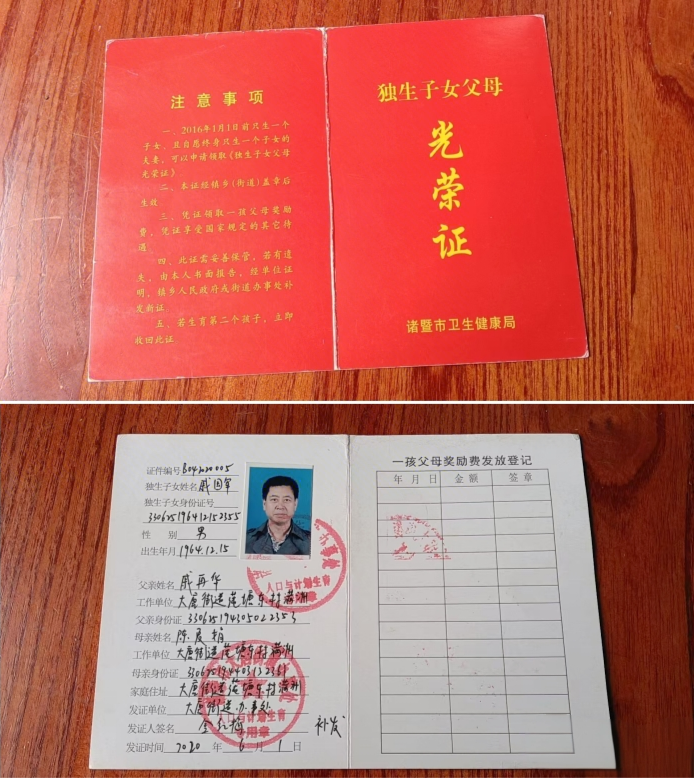 注意事项
一、2016年1月1日前只生一个
子女、且自愿终身只生一个子女的
夫妻,可以申请领取《独生子女父母
光荣证》
二、本证经镇乡(街道)盖章后
生效
三、凭证领取一孩父母奖励
费,凭证享受国家规定的其它待
遇
四、此证需妥善保管,若有遗
失,由本人书面报告,经单位证
明,镇乡人民政府或街道办事处补
发新证
五、若生育第二个孩子,立即
收回此证
独生子女父母
光
荣
证
诸暨市卫生健康局
证件编号
独生子女姓名 戚国军
独生子女身份证号
性别 男
出生年月 1964.12.15
父亲姓名 戚再华
工作单位 大唐街道
父亲身份证
母亲姓名 陈
工作单位 大唐街道
母亲身份证
家庭住址 大唐街道
发证单位 大唐街道办事处
发证人签名 补发
发证时间 2020年6月1日
人口与计划生育
专用章
一孩父母奖励费发放登记
年月日 金额 签章